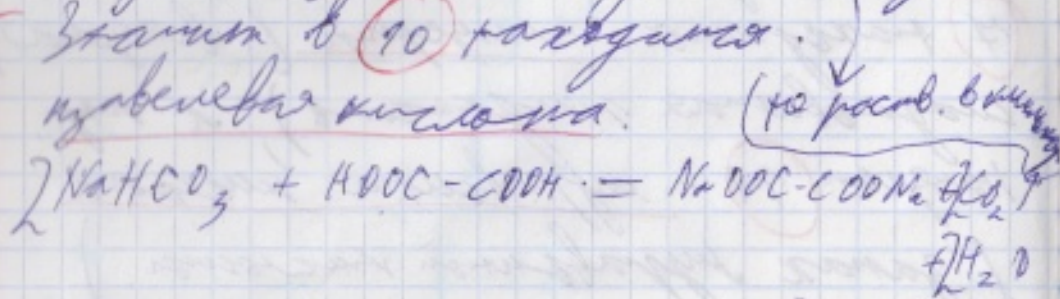 Значит в 10 находится.
щавелевая кислота.
(то раств. в
2NaHCO₃ + HOOC-COOH = NaOOC-COONa + 2CO₂↑
+ 2H₂O